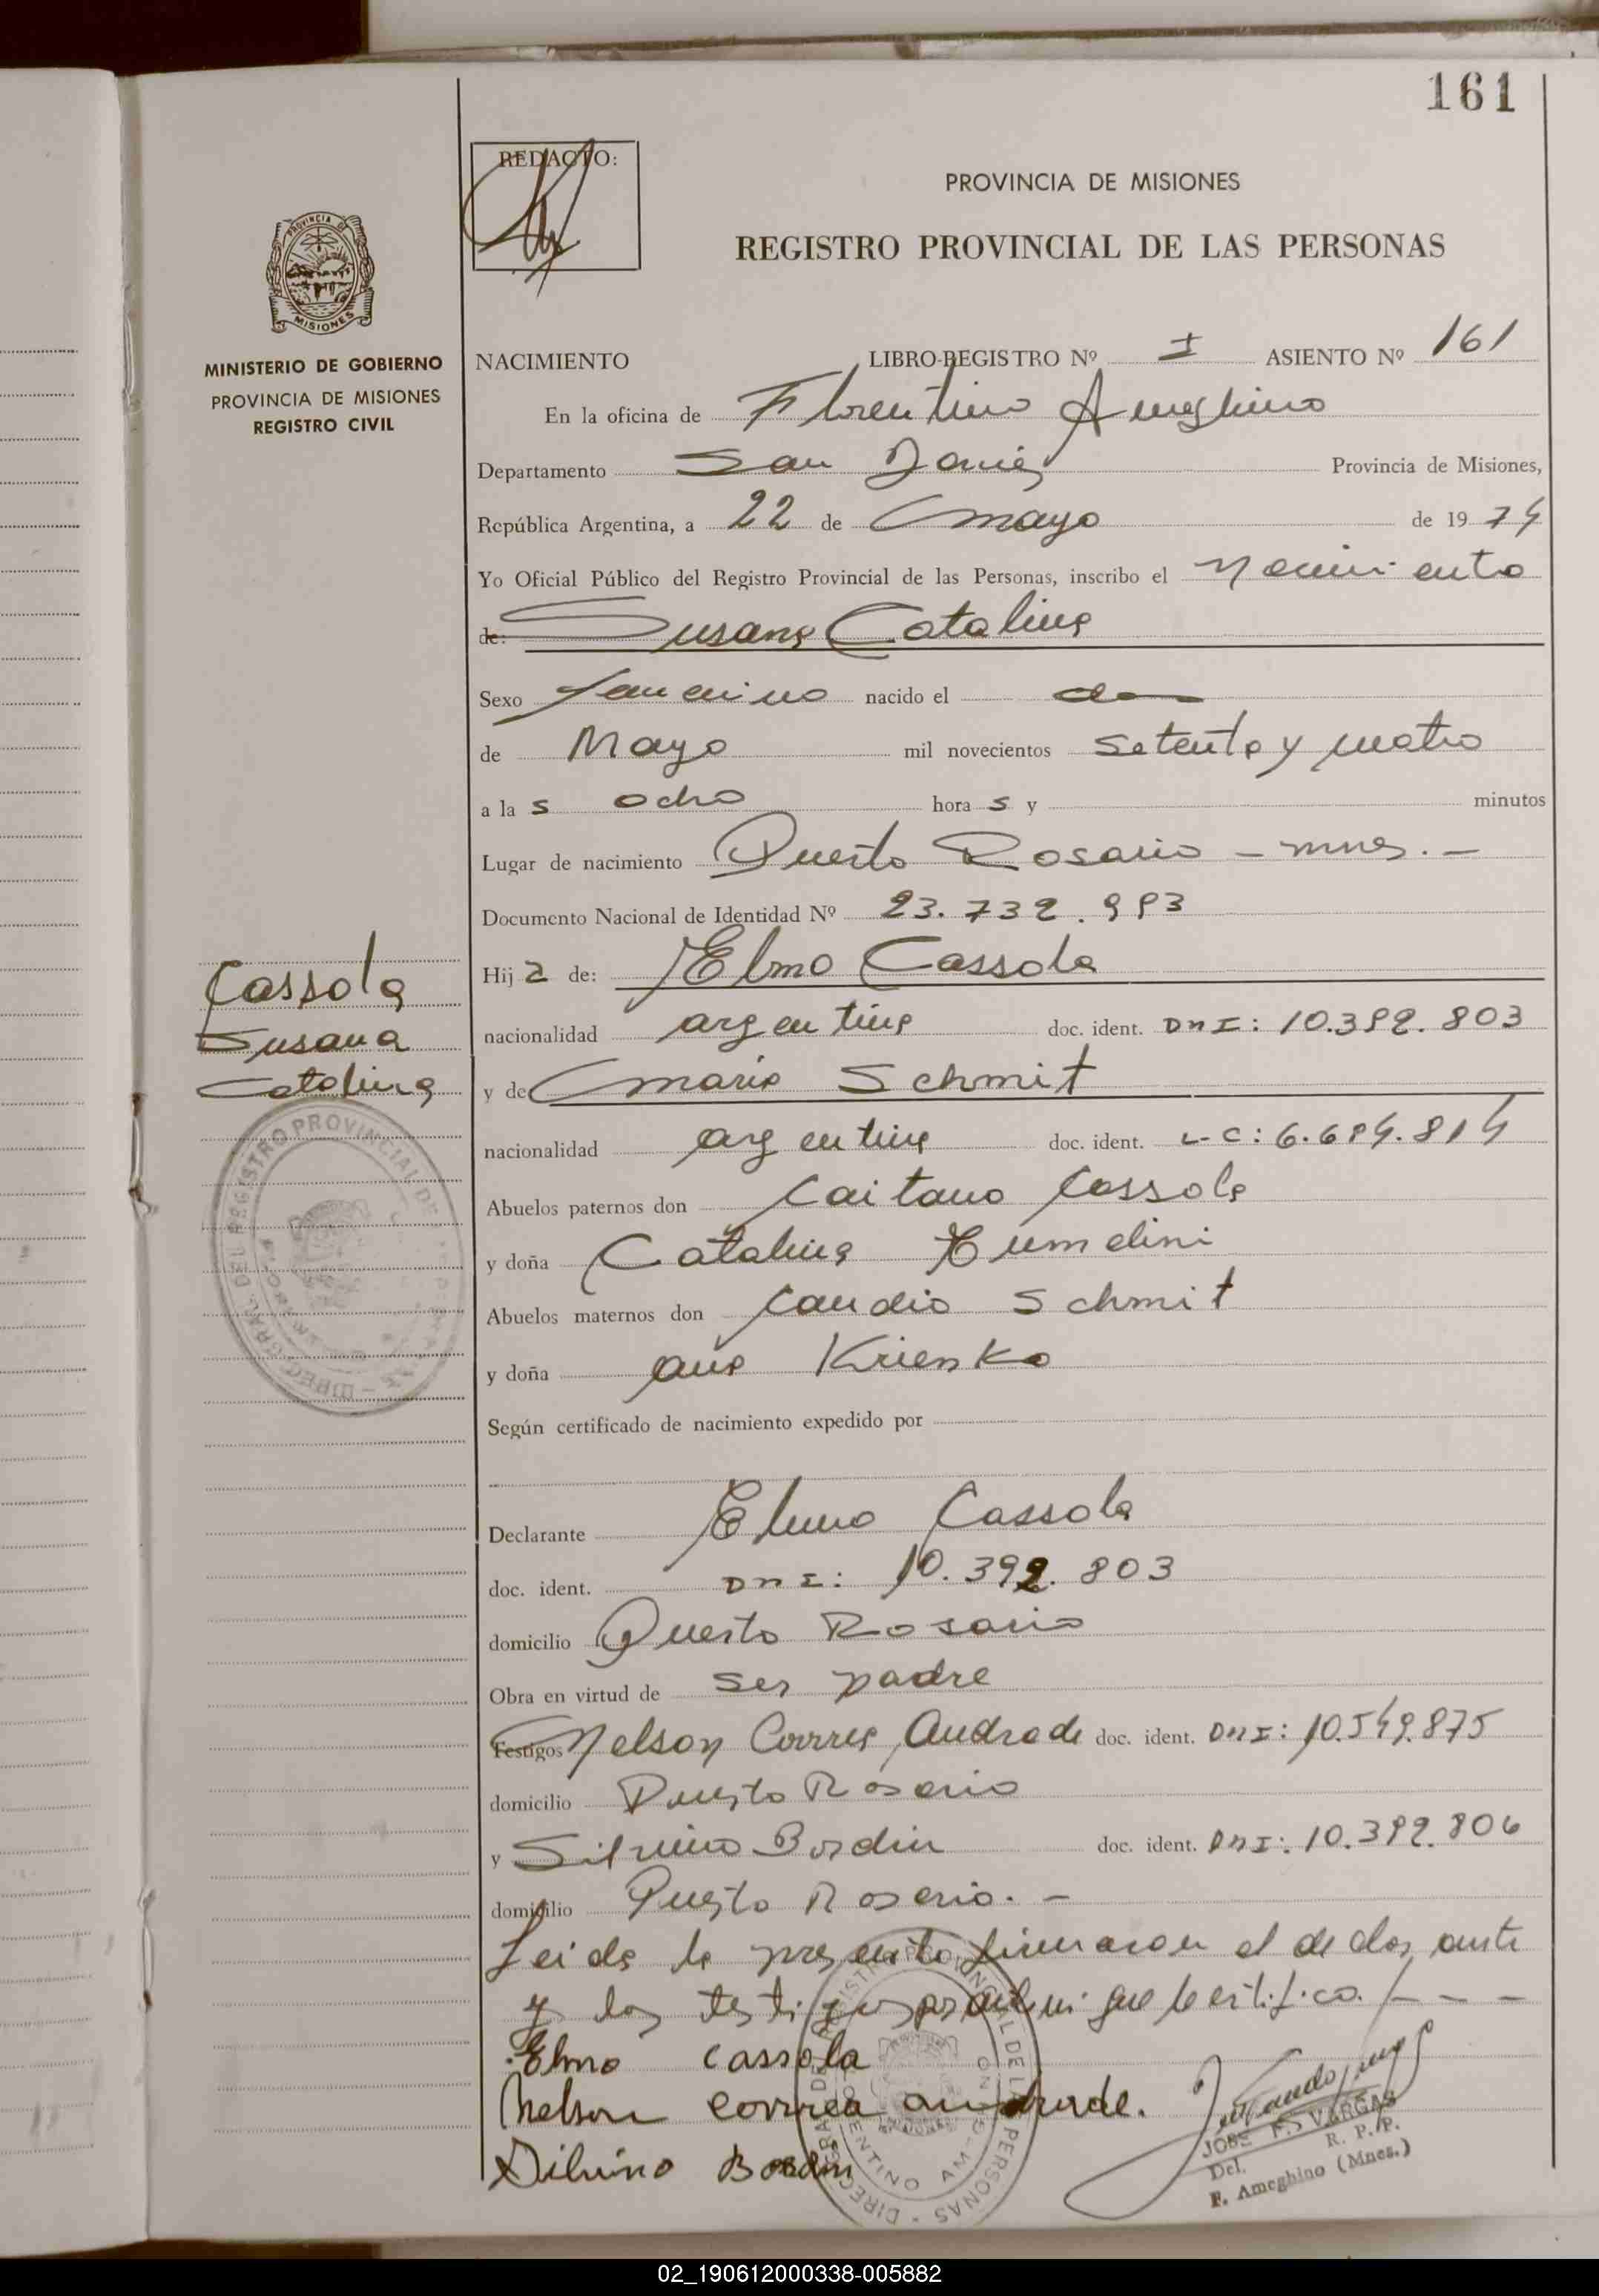 161
REDACTO:
PROVINCIA DE MISIONES
REGISTRO PROVINCIAL DE LAS PERSONAS
PROVINCIA DE
MISIONES
MINISTERIO DE GOBIERNO
PROVINCIA DE MISIONES
REGISTRO CIVIL
NACIMIENTO LIBRO-REGISTRO Nº I ASIENTO Nº 161
En la oficina de Florentino Ameghino
Departamento San Javier Provincia de Misiones,
República Argentina, a 22 de mayo de 1974
Yo Oficial Público del Registro Provincial de las Personas, inscribo el Nacimiento
de: Susana Catalina
Sexo femenino nacido el dos
de Mayo mil novecientos setenta y cuatro
a las ocho horas y minutos
Lugar de nacimiento Puerto Rosario - mnes. -
Documento Nacional de Identidad Nº 23.732.993
Hija de: Elmo Cassola
nacionalidad argentina doc. ident. DNI: 10.392.803
y de maria Schmit
nacionalidad argentina doc. ident. L-C: 6.684.814
Abuelos paternos don Caitano Cassola
y doña Catalina
Abuelos maternos don Candio Schmit
y doña ana Krienko
Según certificado de nacimiento expedido por
Cassola
Susana
Catalina
Declarante Elmo Cassola
doc. ident. DNI: 10.392.803
domicilio Puerto Rosario
Obra en virtud de ser padre
Testigos Nelson Correa Andrade doc. ident. DNI: 10.549.875
domicilio Puerto Rosario
y Silvino Bordin doc. ident. DNI: 10.392.806
domicilio Puerto Rosario. -
Leida la presente firmaron el declarante
y los testigos por ante mi que certifico. / - - -
Elmo Cassola
Nelson correa andrade.
Silvino Bordin
JOSE F. S. VARGAS
Del. R. P. P.
F. Ameghino (Mnes.)
02_190612000338-005882